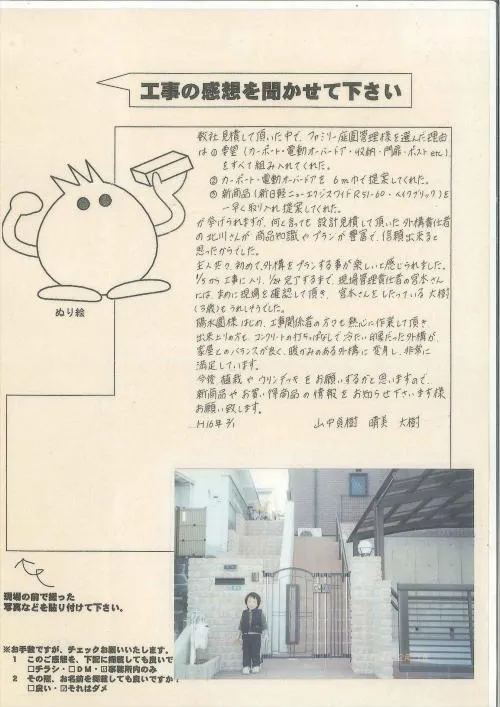 工事の感想を聞かせて下さい
数社見積して頂いた中で、ファミリー庭園管理様を選んだ理由
は①要望(カーポート・電動オーバードア・収納・門扉・ポストetc)
をすべて組み入れてくれた。
②カーポート・電動オーバードアを6m巾で提案してくれた。
③新商品(新日軽ニューエクジスワイドRS1-60・メイクブリック)を
一早く取り入れ提案してくれた。
が挙げられますが、何と言っても設計見積して頂いた外構責任者
の北川さんが商品知識やプランが豊富で、信頼出来ると
思ったからでした。
主人共々、初めて外構をプランする事が楽しいと感じられました。
1/5から工事に入り、1/24完了するまで、現場管理責任者の宮本さん
には、まめに現場を確認して頂き、宮本さんをしたっている大樹
(3歳)もうれしそうでした。
陽水園様はじめ、工事関係者の方々も熱心に作業して頂き、
出来上りの方も、コンクリートの打ちっぱなしで冷たい印象だった外構が、
家屋とのバランスが良く、暖かみのある外構に変身し、非常に
満足しています。
今後植栽やウッドデッキをお願いするかと思いますので、
新商品やお買い得商品の情報をお知らせ下さいます様
お願い致します。
H16年2/1 山中 晴美 大樹
ぬり絵
現場の前で撮った
写真などを貼り付けて下さい。
※お手数ですが、チェックお願いいたします。
1 このご感想を、下記に掲載しても良いで
□チラシ・□DM・☑事務所内のみ
2 その際、お名前を掲載しても良いですか?
□良い・☑それはダメ